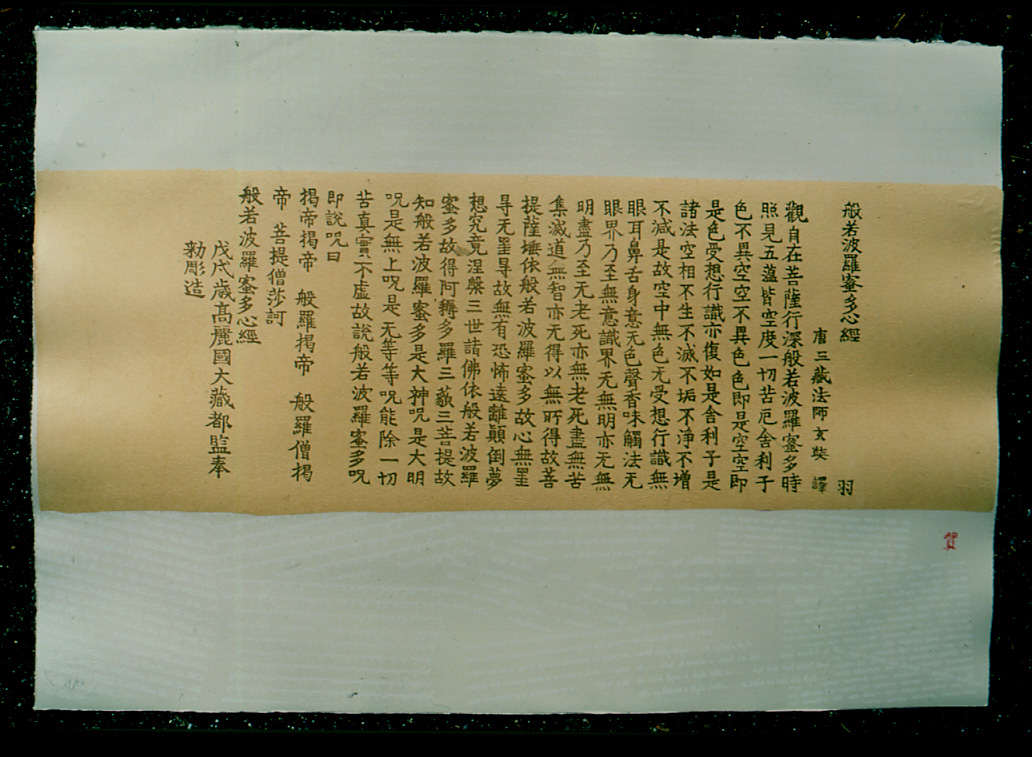 般若波羅蜜多心經 羽
唐三藏法師玄奘 譯
觀自在菩薩行深般若波羅蜜多時
照見五蘊皆空度一切苦厄舍利子
色不異空空不異色色即是空空即
是色受想行識亦復如是舍利子是
諸法空相不生不滅不垢不淨不增
不減是故空中無色无受想行識無
眼耳鼻舌身意无色聲香味觸法无
眼界乃至無意識界无無明亦无無
明盡乃至无老死亦無老死盡無苦
集滅道無智亦无得以無所得故菩
提薩埵依般若波羅蜜多故心無罣
㝵无罣㝵故無有恐怖遠離顚倒夢
想究竟涅槃三世諸佛依般若波羅
蜜多故得阿耨多羅三藐三菩提故
知般若波羅蜜多是大神呪是大明
呪是無上呪是无等等呪能除一切
苦真實不虛故說般若波羅蜜多呪
即說呪曰
揭帝揭帝 般羅揭帝 般羅僧揭
帝 菩提僧莎訶
般若波羅蜜多心經
戊戌歲高麗國大藏都監奉
勅彫造